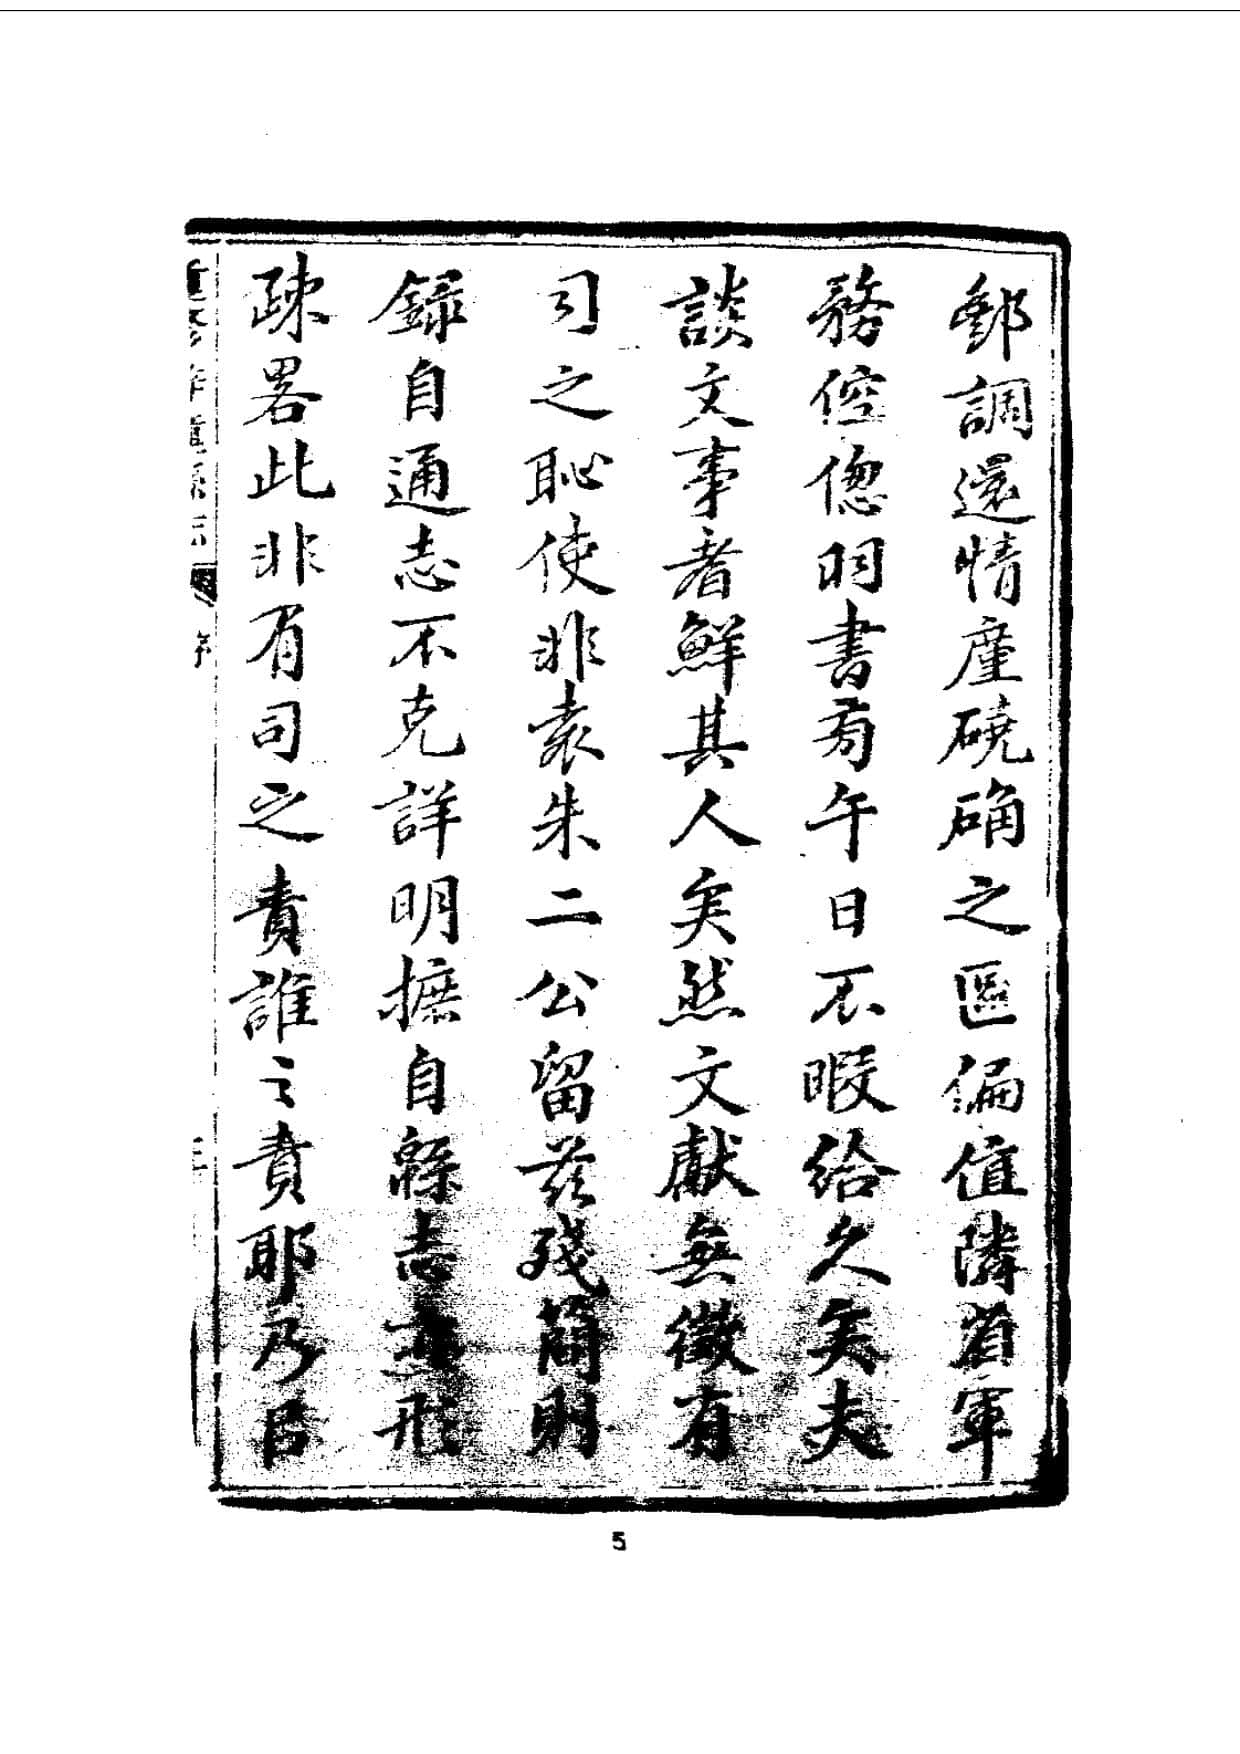 郵調還情廑磽确之區偏值隣省軍
務倥傯羽書旁午日不暇給久矣夫
談文事者鮮其人矣然文獻無徵有
司之恥使非袁朱二公留茲殘簡則
錄自通志不克詳明摭自縣志
疎畧此非有司之責誰之責耶乃
序
5